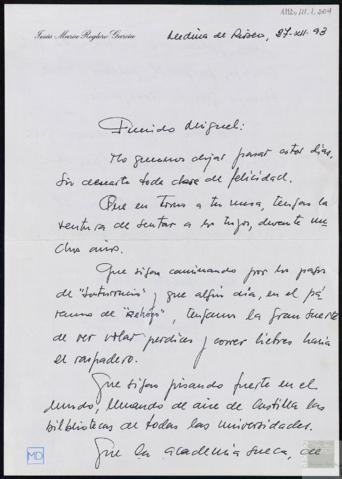 AMD, 111, 1, 204
Jesús María Reglero García
Medina de Rioseco, 27-XII-93
Querido Miguel:
No queremos dejar pasar estos días,
sin desearte toda clase de felicidad.
Que en torno a tu mesa, tengas la
ventura de sentar a los tuyos, durante mu-
chos años.
Que sigas caminando por los pagos
de " " y que algún día, en el pá-
ramo de " ", tengamos la gran suerte
de ver volar perdices y correr liebres hacia
el raspadero.
Que sigas pisando fuerte en el
mundo, llenando de aire de Castilla las
bilbliotecas de todas las universidades.
Que la academia sueca, de
MD